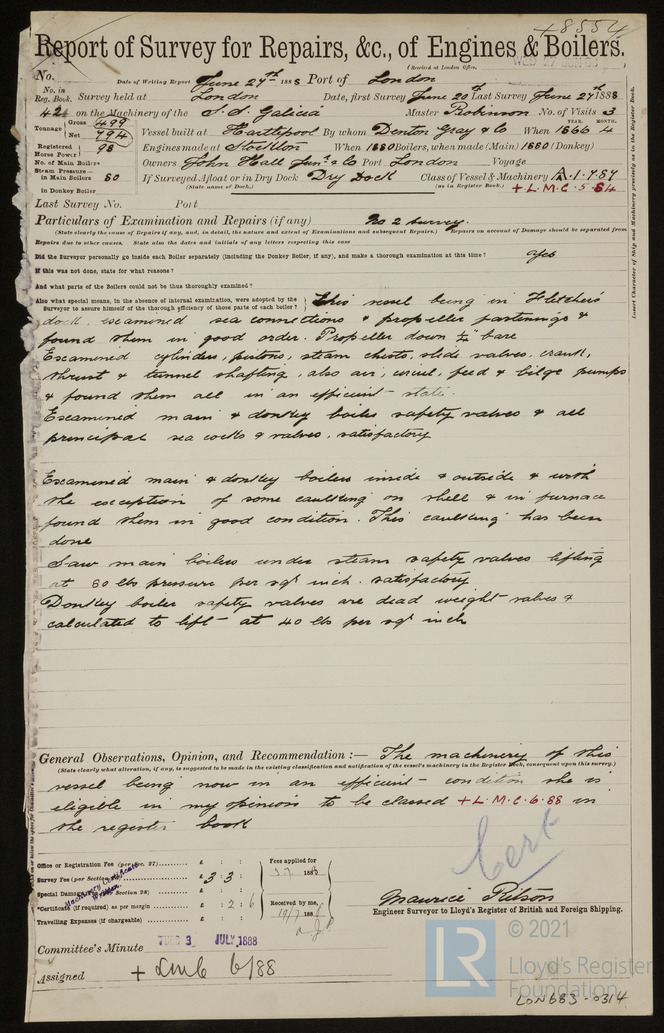 48554
Report of Survey for Repairs, &c., of Engines & Boilers.
(Received at London Office,
No. Date of Writing Report June 27th 1888 Port of London
No. in Reg. Book. Survey held at London Date, first Survey June 20th Last Survey June 27 1888
42 on the Machinery of the S.S. Galicia Master Robinson No. of Visits 3
Tonnage Gross 499 Net 494 Vessel built at Hartlepool By whom Denton Gray & Co When 1866 4 YEAR. MONTH.
Registered Horse Power 98 Engines made at Stockton When 1880 Boilers, when made (Main) 1880 (Donkey)
No. of Main Boilers Owners John Hall Junr. & Co Port London Voyage
Steam Pressure— in Main Boilers 60 If Surveyed Afloat or in Dry Dock Dry Dock Class of Vessel & Machinery A.1.
(State name of Dock.) (as in Register Book.) + L.M.C. 5.84
in Donkey Boiler
Last Survey No. Port
Particulars of Examination and Repairs (if any) No 2 Survey.
(State clearly the cause of Repairs if any, and, in detail, the nature and extent of Examinations and subsequent Repairs.) Repairs on account of Damage should be separated from
Repairs due to other causes. State also the dates and initials of any letters respecting this case
Did the Surveyor personally go inside each Boiler separately (including the Donkey Boiler, if any), and make a thorough examination at this time? Yes
If this was not done, state for what reasons?
And what parts of the Boilers could not be thus thoroughly examined?
Also what special means, in the absence of internal examination, were adopted by the
Surveyor to assure himself of the thorough efficiency of those parts of each boiler? This vessel being in Fletcher's
dock, examined sea connections & propeller fastenings &
found them in good order. Propeller down bare
Examined cylinders, pistons, steam chests, slide valves, crank,
thrust & tunnel shafting, also air, circul, feed & bilge pumps
& found them all in an efficient state.
Examined main & donkey boiler safety valves & all
principal sea cocks & valves, satisfactory
Examined main & donkey boilers inside & outside & with
the exception of some caulking on shell & in furnace
found them in good condition. This caulking has been
done
Saw main boilers under steam safety valves lifting
at 60 lbs pressure per sqr inch. satisfactory
Donkey boiler safety valves are dead weight valves &
calculated to lift at 40 lbs per sqr inch
General Observations, Opinion, and Recommendation :— The machinery of this
(State clearly what alteration, if any, is suggested to be made in the existing classification and notification of the vessel's machinery in the Register Book, consequent upon this survey.)
vessel being now in an efficient condition she is
eligible in my opinion to be classed + L.M.C. 6.88 in
the register book
Cert
Office or Registration Fee (per Sec. 27) £ : : Fees applied for
Survey Fee (per Section £ 3 : 3 : 188
Special Damage Section 28) £ : :
Machinery Certificate Written
*Certificate (if required) as per margin £ : 2 : 6 Received by me,
Travelling Expenses (if chargeable) £ : : 19/7 188
Maurice Ritson
Engineer Surveyor to Lloyd's Register of British and Foreign Shipping.
Committee's Minute TUES 3 JULY 1888
Assigned + LMC 6/88
Insert Character of Ship and Machinery precisely as in the Register Book.
© 2021
LR Lloyd's Register
Foundation
LON683-0314